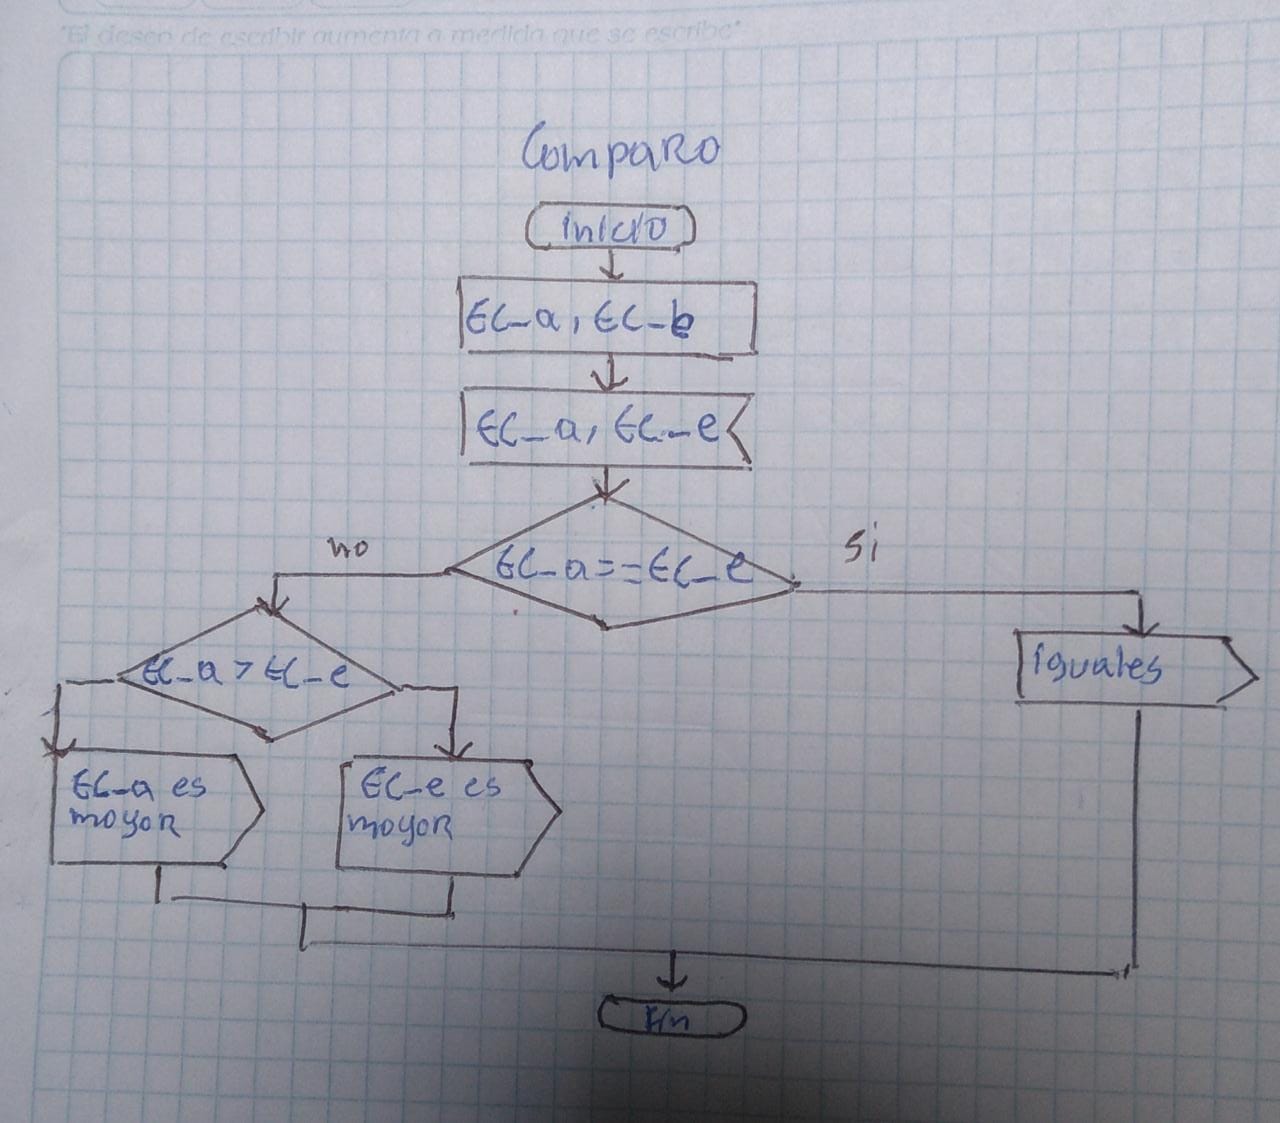 "El deseo de escribir aumenta a medida que se escribe"
Comparo
inicio
EC_a, EC_e
EC_a, EC_e
no
si
EC_a==EC_e
EC_a > EC_e
iguales
EC_a es
mayor
EC_e es
mayor
Fin